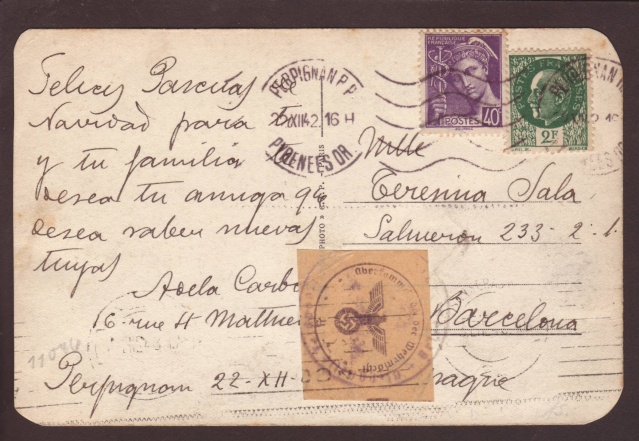 Felices Pascuas
Navidad para ti
y tu familia
desea tu amiga qe
desea saber nuevas
tuyas
Adela Carbo
16 rue St Mathieu
Perpignan 22-XII-
PERPIGNAN P.P.
XII 42. 16 H
PYRENEES OR.
RÉPUBLIQUE FRANÇAISE
POSTES
40c
POSTES FRANÇAISES
2F
Mlle
Teresina Sala
Salmeron 233-2-1
Barcelona
Oberkommando der Wehrmacht
PHOTO